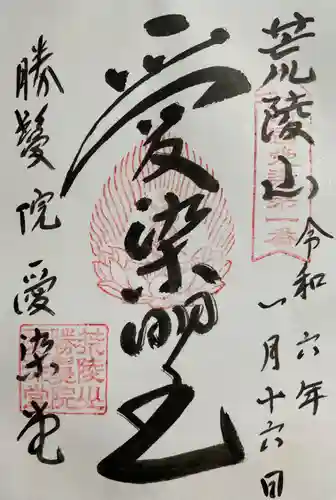 荒陵山
令和六年
一月十六日
愛染明王
勝鬘院愛染堂
荒陵山
勝鬘院
愛染堂